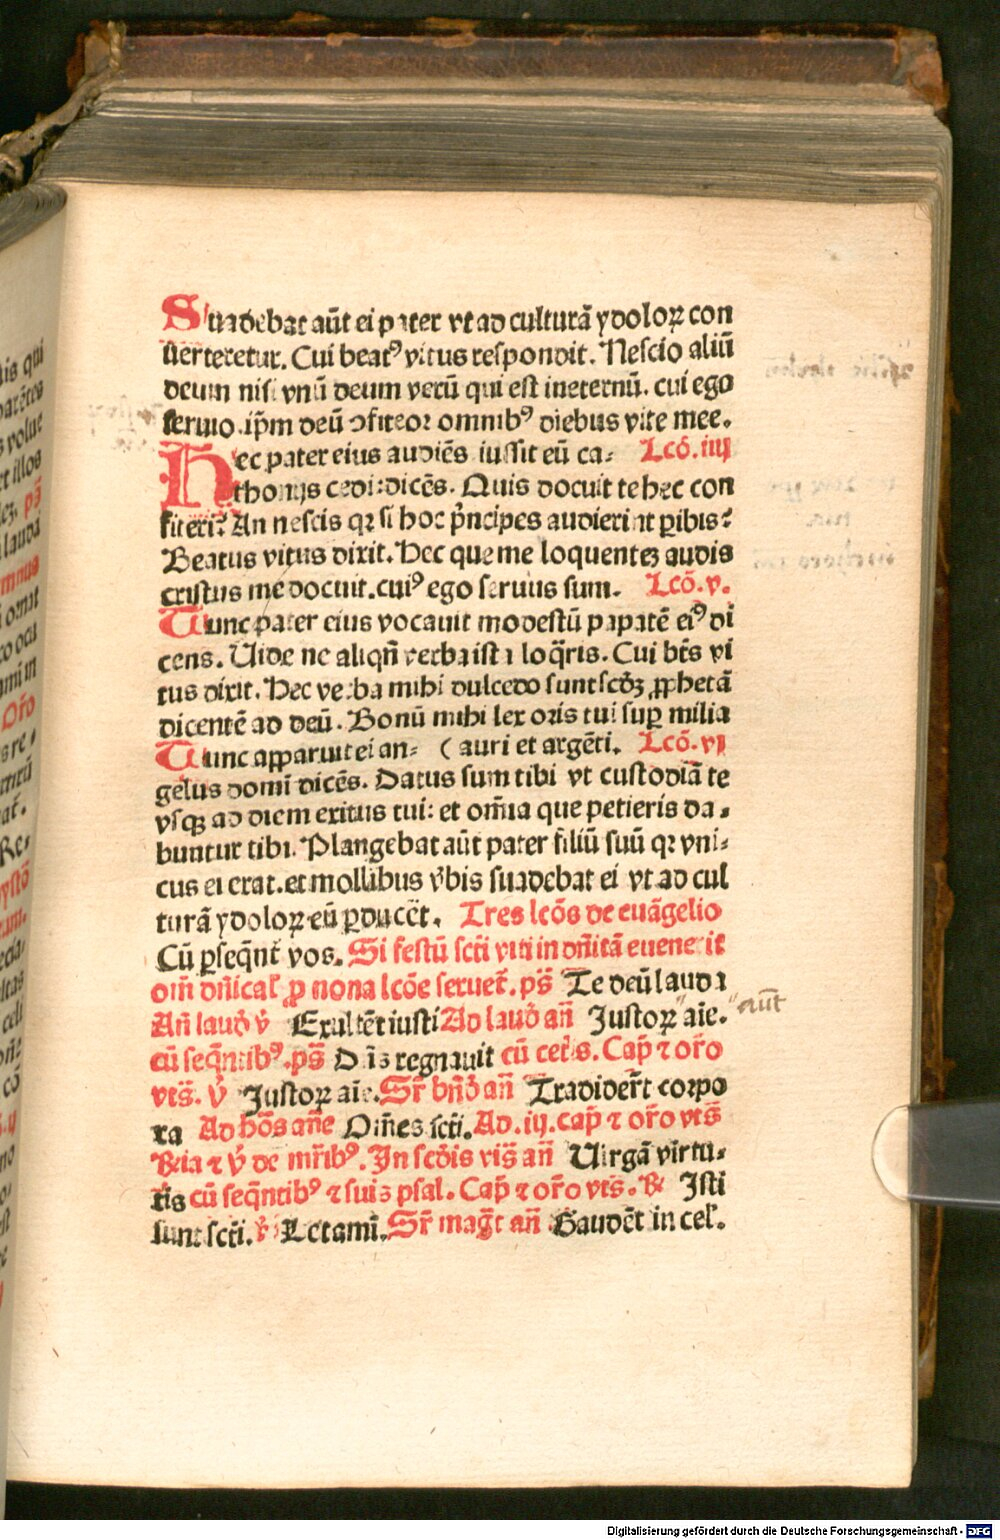 Suadebat aūt ei pater vt ad culturā ydoloꝝ con
uerteretur. Cui beatꝰ vitus respondit. Nescio aliū
deum nisi vnū deum verū qui est ineternū. cui ego
seruio. ip̄m deū ↄfiteor omnibꝰ diebus vite mee.
Hec pater eius audiēs iussit eū ca⸗ Lcō. iiij
thomijs cedi: dicēs. Quis docuit te hec con
fiteri? An nescis qꝛ si hoc p̄ncipes audierint ꝑibis?
Beatus vitus dixit. Hec que me loquentē audis
cristus me docuit. cuiꝰ ego seruus sum. Lcō. v.
Tunc pater eius vocauit modestū papatē eiꝰ di
cens. Uide ne aliqn̄ verba ista loq̄ris. Cui bt̄s vi
tus dixit. Hec verba mihi dulcedo sunt scd̄ꝫ ꝓphetā
dicentē ad deū. Bonū mihi lex oris tui suꝑ milia
Tunc apparuit ei an⸗ ( auri et argēti. Lcō. vj
gelus domī dicēs. Datus sum tibi vt custodiā te
vsqꝫ ad diem exitus tui: et om̄ia que petieris da⸗
buntur tibi. Plangebat aūt pater filiū suū qꝛ vni⸗
cus ei erat. et mollibus v̄bis suadebat ei vt ad cul
turā ydoloꝝ eū ꝑducēt. Tres lcōs de euāgelio
Cū ꝑseqn̄t vos. Si festū scti viti in dn̄icā euenerit
om̄ dn̄ical ꝓ nona lcōe seruet. ps̄ Te deū lauda
An̄ laud̄ v̄ Exultēt iusti Ad laud̄ an̄ Justoꝝ aīe. aūt
cū seqn̄tibꝰ. ps̄ Dn̄s regnauit cū cet̄is. Cap̄ ⁊ or̄o
vts̄. v̄ Justoꝝ aīe. Sr̄ bn̄d̄ an̄ Tradider̄t corpo
ra Ad hōs an̄e Om̄es scti. Ad. iij. cap̄ ⁊ or̄o vts̄
℟ia ⁊ v̄ de mr̄ibꝰ. In scd̄is vis̄ an̄ Uirgā virtu⸗
tis cū seqn̄tibꝰ ⁊ suis psal. Cap̄ ⁊ or̄o vts̄. ℟ Isti
sunt scti. v̄ Letamī. Sr̄ magt̄ an̄ Gaudēt in cel.
Digitalisierung gefördert durch die Deutsche Forschungsgemeinschaft - DFG